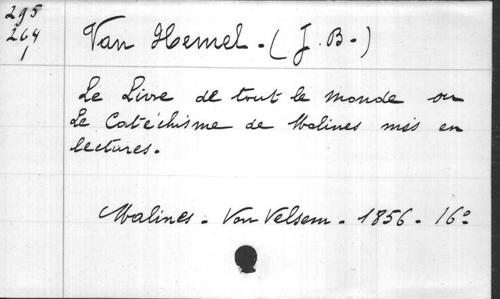 295
264
1
Van Hemel. (J. B.)
Le Livre de tout le monde ou
Le Catéchisme de Malines mis en
lectures.
Malines. Van Velsem. 1856. 16º